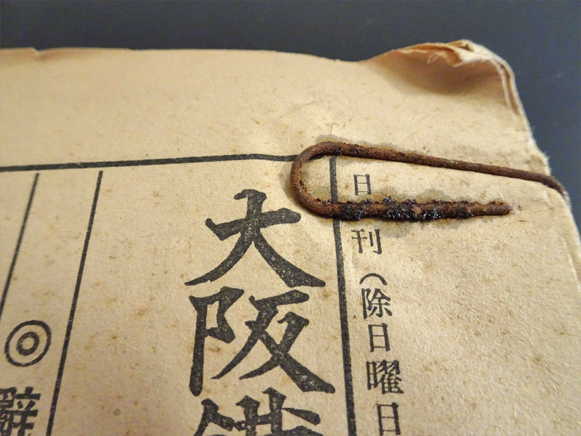 日刊（除日曜日
大阪鐵
◎辭